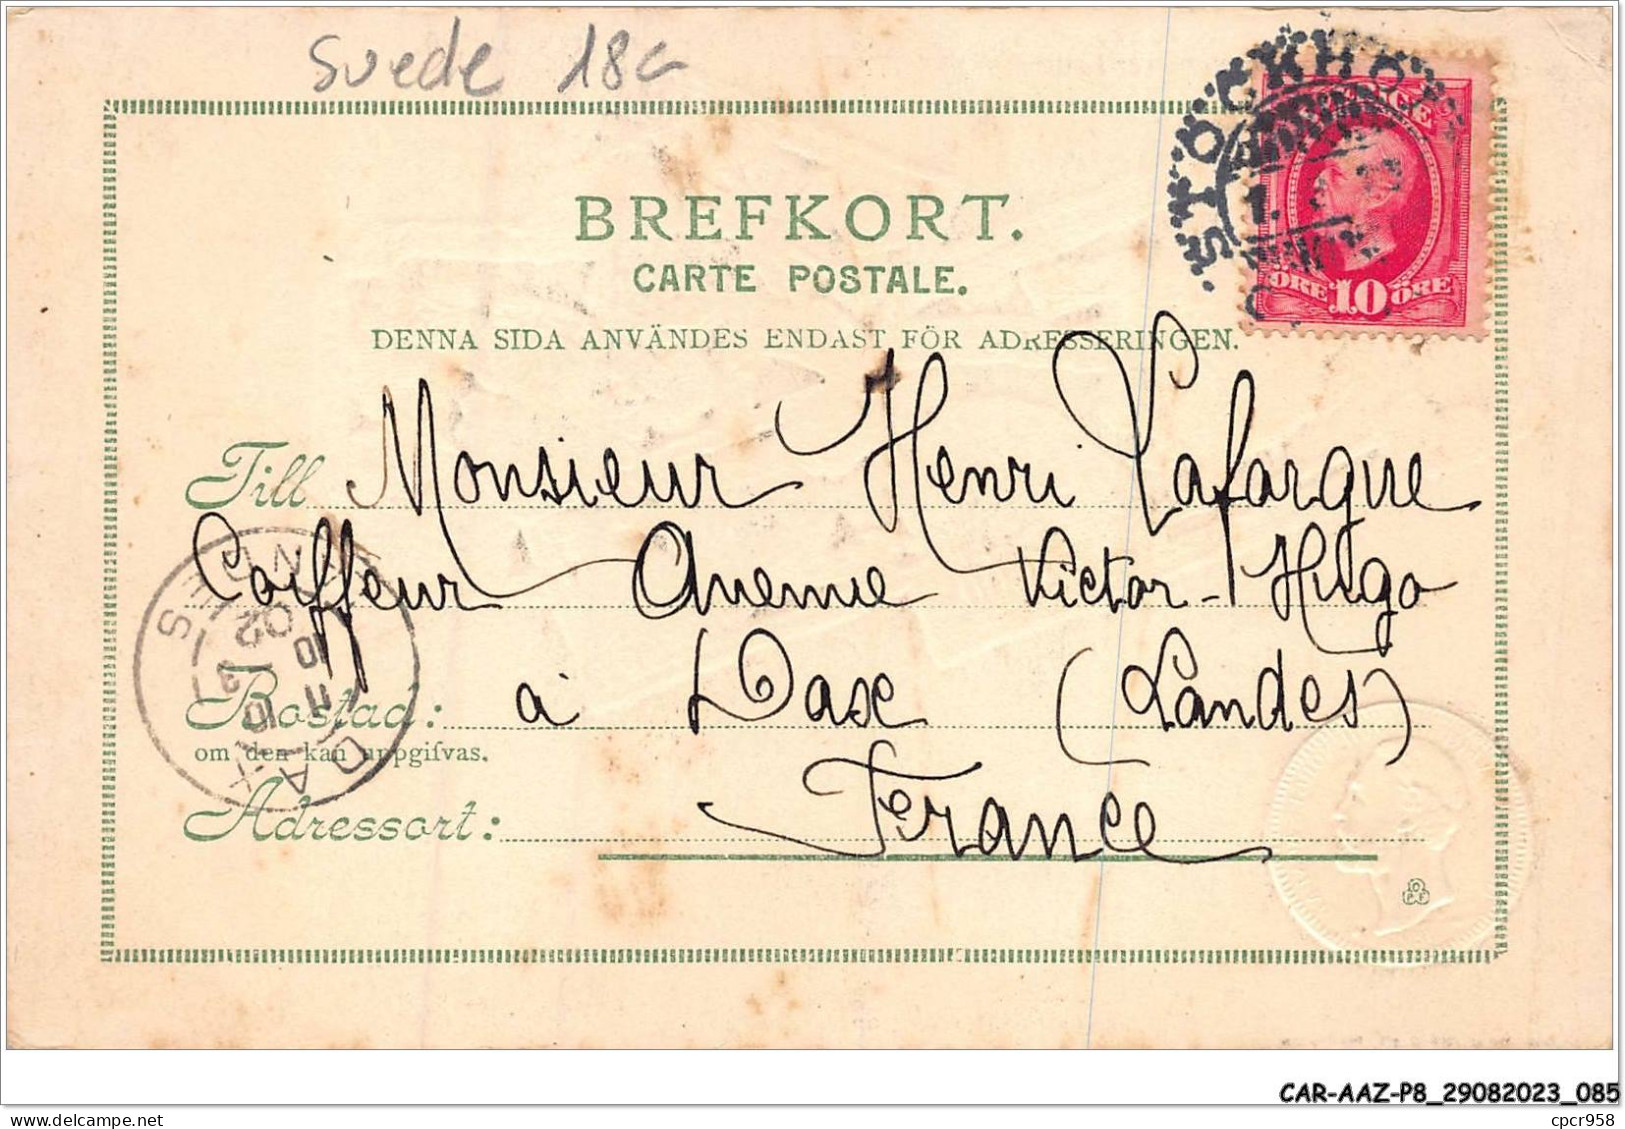 Suede 18c
STOCKHO
SVERIGE
1.
ÖRE 10 ÖRE
BREFKORT.
CARTE POSTALE.
DENNA SIDA ANVÄNDES ENDAST FÖR ADRESSERINGEN.
Till Monsieur Henri Lafargue
Coiffeur Avenue Victor-Hugo
Bostad: à Dax (Landes)
om den kan uppgifvas.
Adressort: France
DAX
LANDES
CAR-AAZ-P8_29082023_085
www.delcampe.net
cpcr958